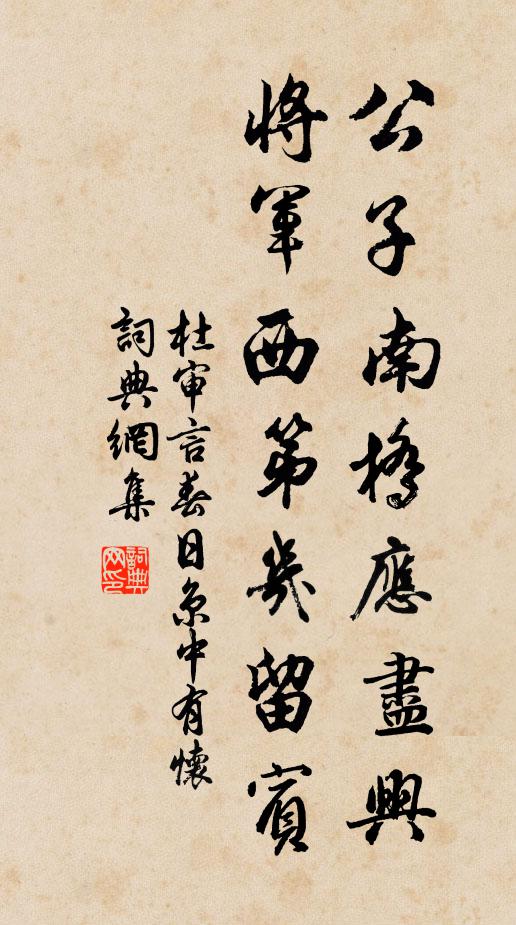 公子南橋應盡興
將軍西第幾留賓
杜审言春日京中有懷
詞典網集
詞典網印